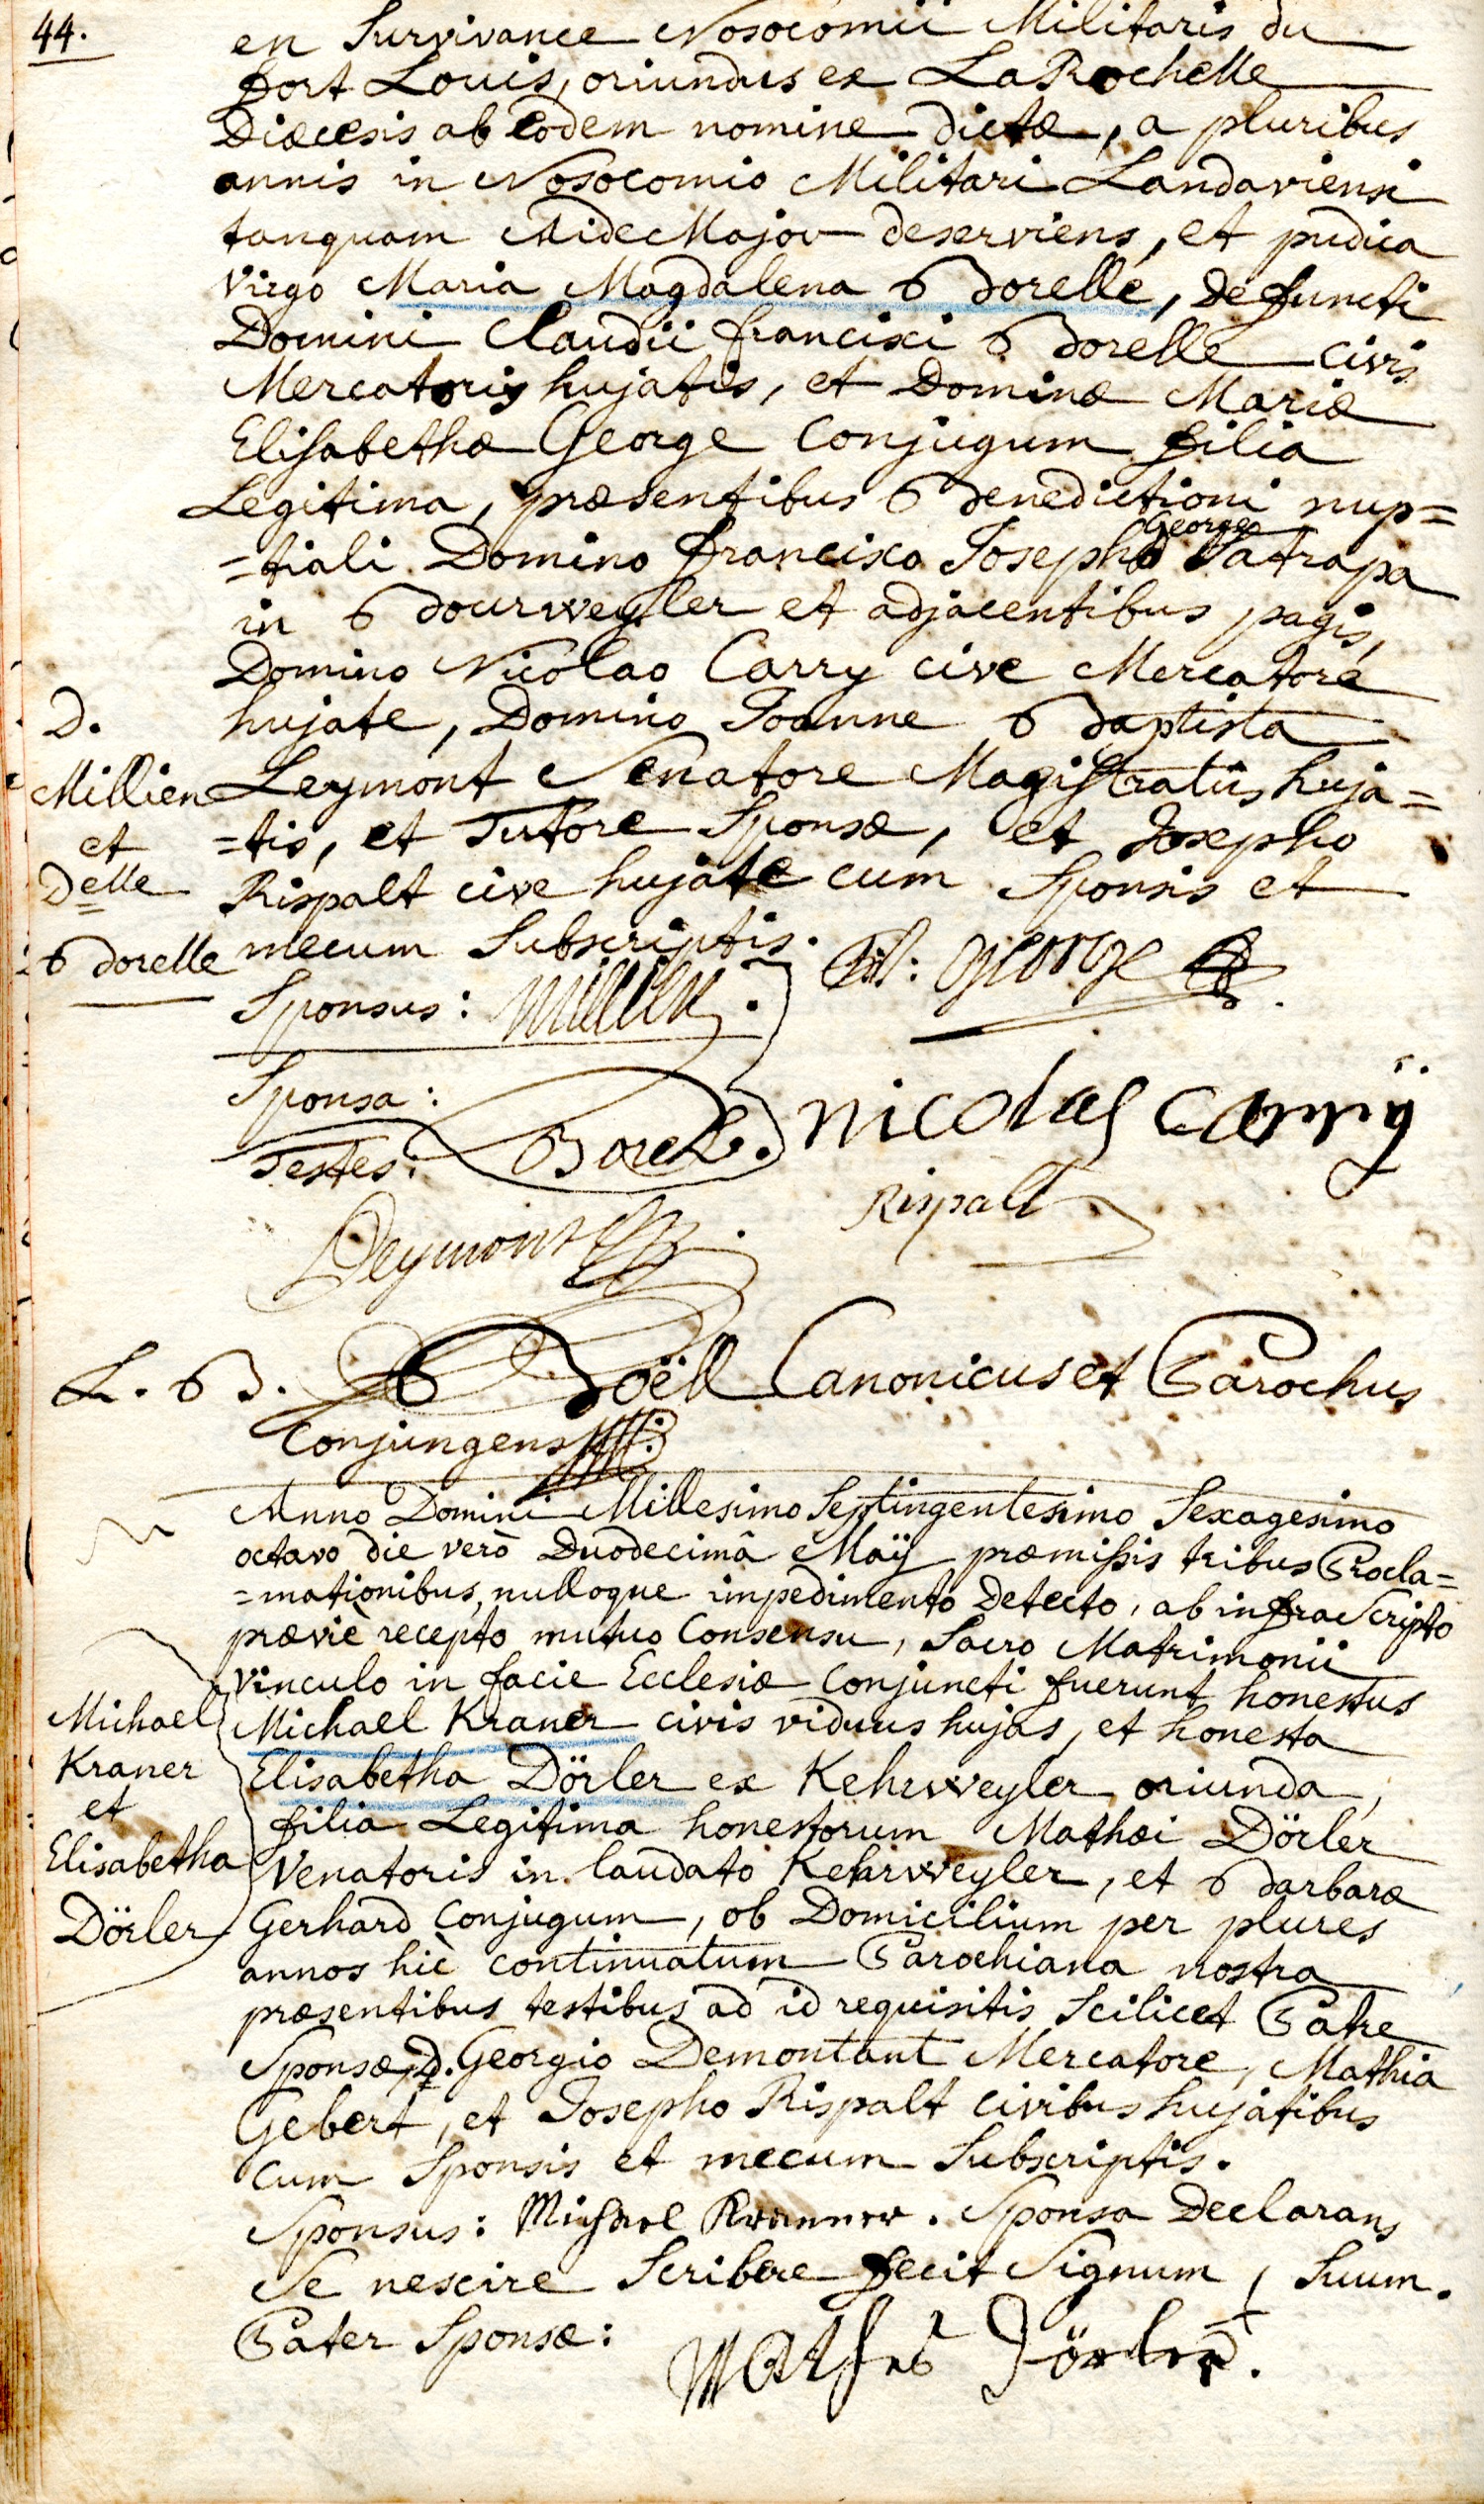 44.
en Survivance Nosocomii Militaris du
fort Louis, oriundus ex La Rochelle
Diœcesis ab eodem nomine dictæ, a pluribus
annis in Nosocomio Militari Landaviensi
tanquam Aide Major deserviens, et pudica
Virgo Maria Magdalena Borelle, defuncti
Domini Claudii francisci Borelle civis
Mercatoris hujatis, et Dominæ Mariæ
Elisabethæ George Conjugum filia
Legitima, præsentibus Benedictioni nup=
George
=tiali Domino francisco Josepho Satrapa
in Bourweyler et adjacentibus pagis,
Domino Nicolao Carry cive Mercatore
hujate, Domino Joanne Baptista
Leymont Senatore Magistratûs huja=
=tis, et Tutore Sponsæ, et Josepho
Rispalt cive hujate cum Sponsis et
mecum Subscriptis.
D.
Millien
et
Delle
Borelle
george
Sponsus: millien.
Sponsa:
Borelle.
nicolas carrÿ
Testes:
Rispalt
Leymont
L. B. Boëll Canonicus et Parochus
Conjungens
Anno Domini Millesimo Septingentesimo Sexagesimo
octavo die verò Duodecimâ Maÿ præmissis tribus Procla=
=mationibus, nulloque impedimento Detecto, ab infra Scripto
præviè recepto mutuo Consensu, Sacro Matrimonii
vinculo in facie Ecclesiæ Conjuncti fuerunt honestus
Michael Kraner civis viduus hujas, et honesta
Elisabetha Dörler ex Kehrweyler oriunda,
filia Legitima honestorum Mathæi Dörler
Venatoris in laudato Kehrweyler, et Barbaræ
Gerhard Conjugum, ob Domicilium per plures
annos hìc continuatum Parochiana nostra
præsentibus testibus ad id requisitis Scilicet Patre
Sponsæ, D. Georgio Demontant Mercatore, Mathia
Gebert, et Josepho Rispalt Civibus hujatibus
Cum Sponsis et mecum Subscriptis.
Michael
Kraner
et
Elisabetha
Dörler
Sponsus: Michael Kranner. Sponsa Declarans
Se nescire Scribere fecit Signum Suum.
Pater Sponsæ: Mathes Dörler.